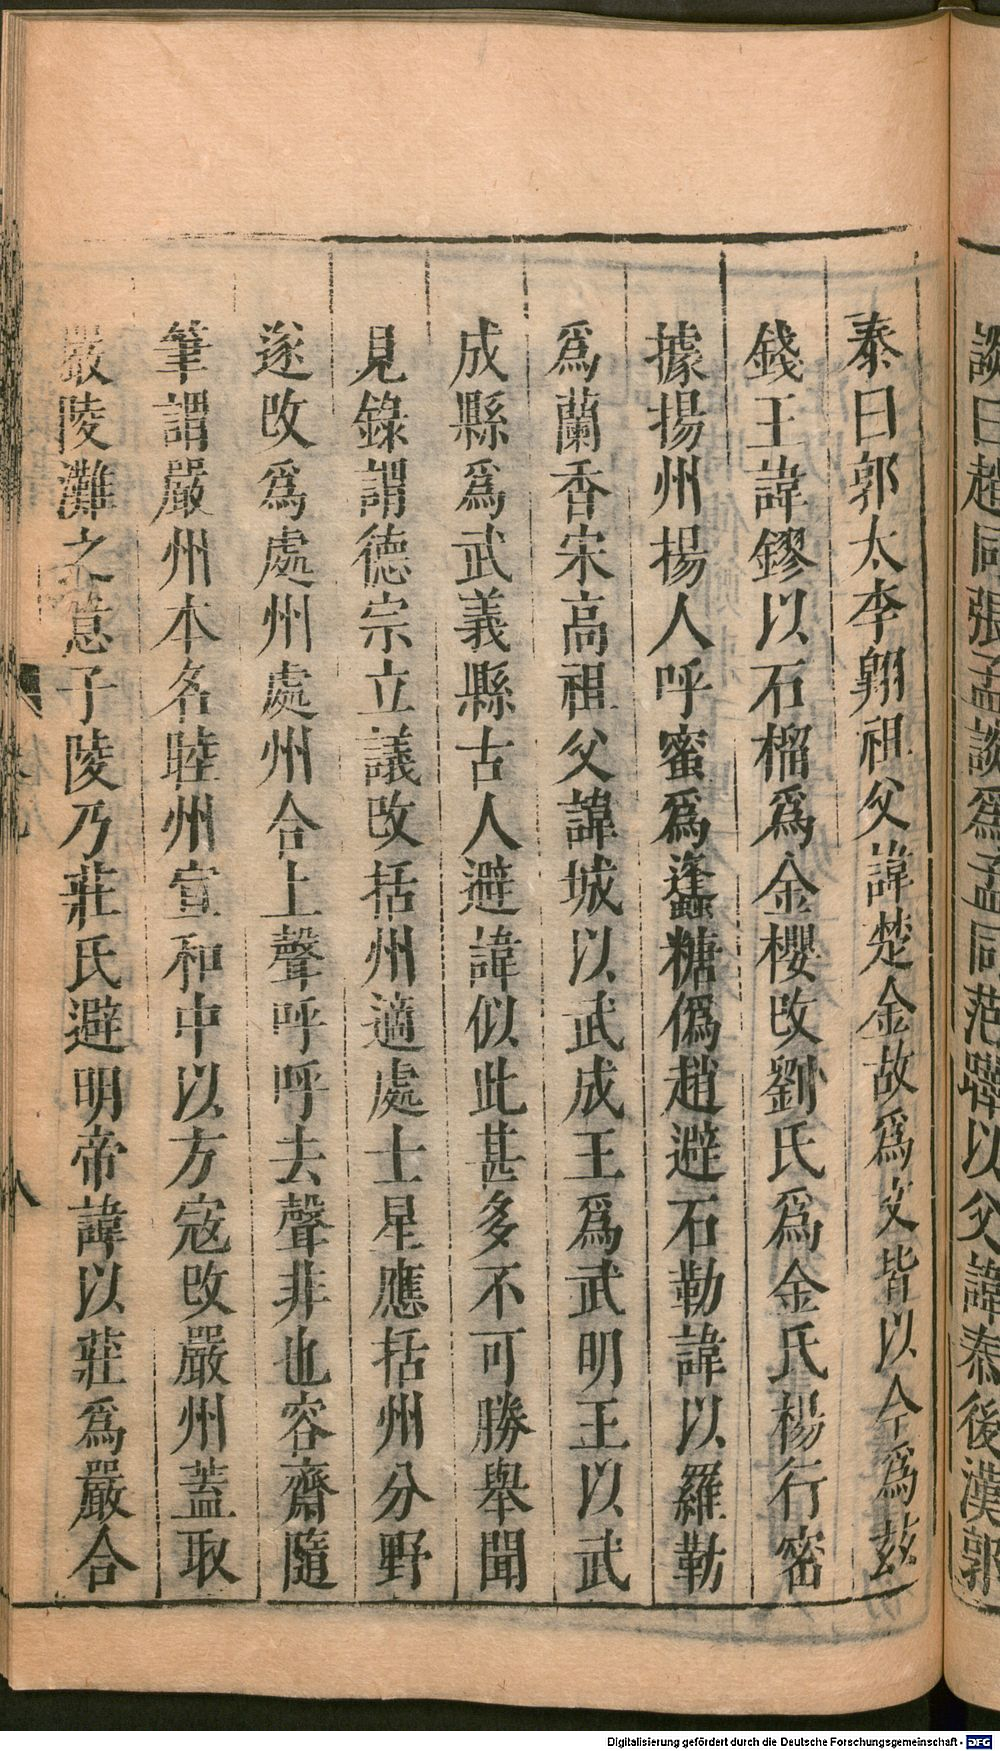 談曰趙同張孟談爲孟同范曄以父諱泰後漢郭
泰曰郭太李翺祖父諱楚金故爲文皆以今爲茲
錢王諱鏐以石榴爲金櫻改劉氏爲金氏楊行密
據揚州揚人呼蜜爲蠭糖僞趙避石勒諱以羅勒
爲蘭香宋高祖父諱城以武成王爲武明王以武
成縣爲武義縣古人避諱似此甚多不可勝舉聞
見錄謂德宗立議改括州適處士星應括州分野
遂改爲處州處州合上聲呼呼去聲非也容齋隨
筆謂嚴州本名睦州宣和中以方寇改嚴州蓋取
嚴陵灘之意子陵乃莊氏避明帝諱以莊爲嚴合
卷九
八
Digitalisierung gefördert durch die Deutsche Forschungsgemeinschaft - DFG